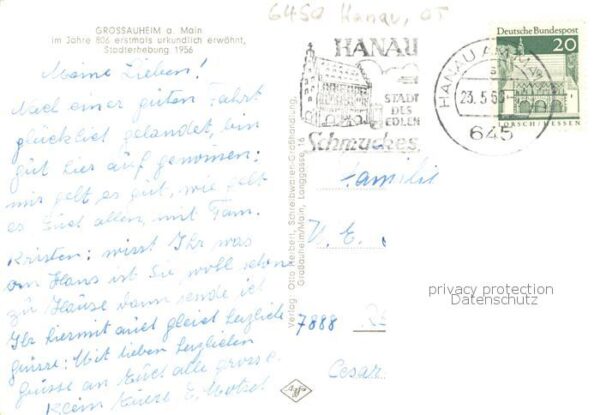 6450 Hanau, OT
GROSSAUHEIM a. Main
im Jahre 806 erstmals urkundlich erwähnt,
Stadterhebung 1956
HANAU
STADT
DES
EDLEN
Schmuckes
HANAU AM MAIN
23.5.6
645
Deutsche Bundespost
20
LORSCH/HESSEN
Meine Lieben!
Nach einer guten Fahrt
glücklich gelandet, bin
gut hier auf genommen;
mir geht es gut, wie geht
es Euch allen, mit Fam.
wisst Ihr was
om Hans ist Sie wohl schon
zu Hause dann sende ich
Ihr hiermit auch gleich herzliche
Grüsse: Mit lieben herzlichen
Grüsse an Euch alle grosse
Klein Eure E.
Verlag Otto Herbert, Schreibwaren-Großhandlung,
Großauheim/Main, Langgasse 16
Familie
V. E.
7888
Cesar
Agfa
privacy protection
Datenschutz